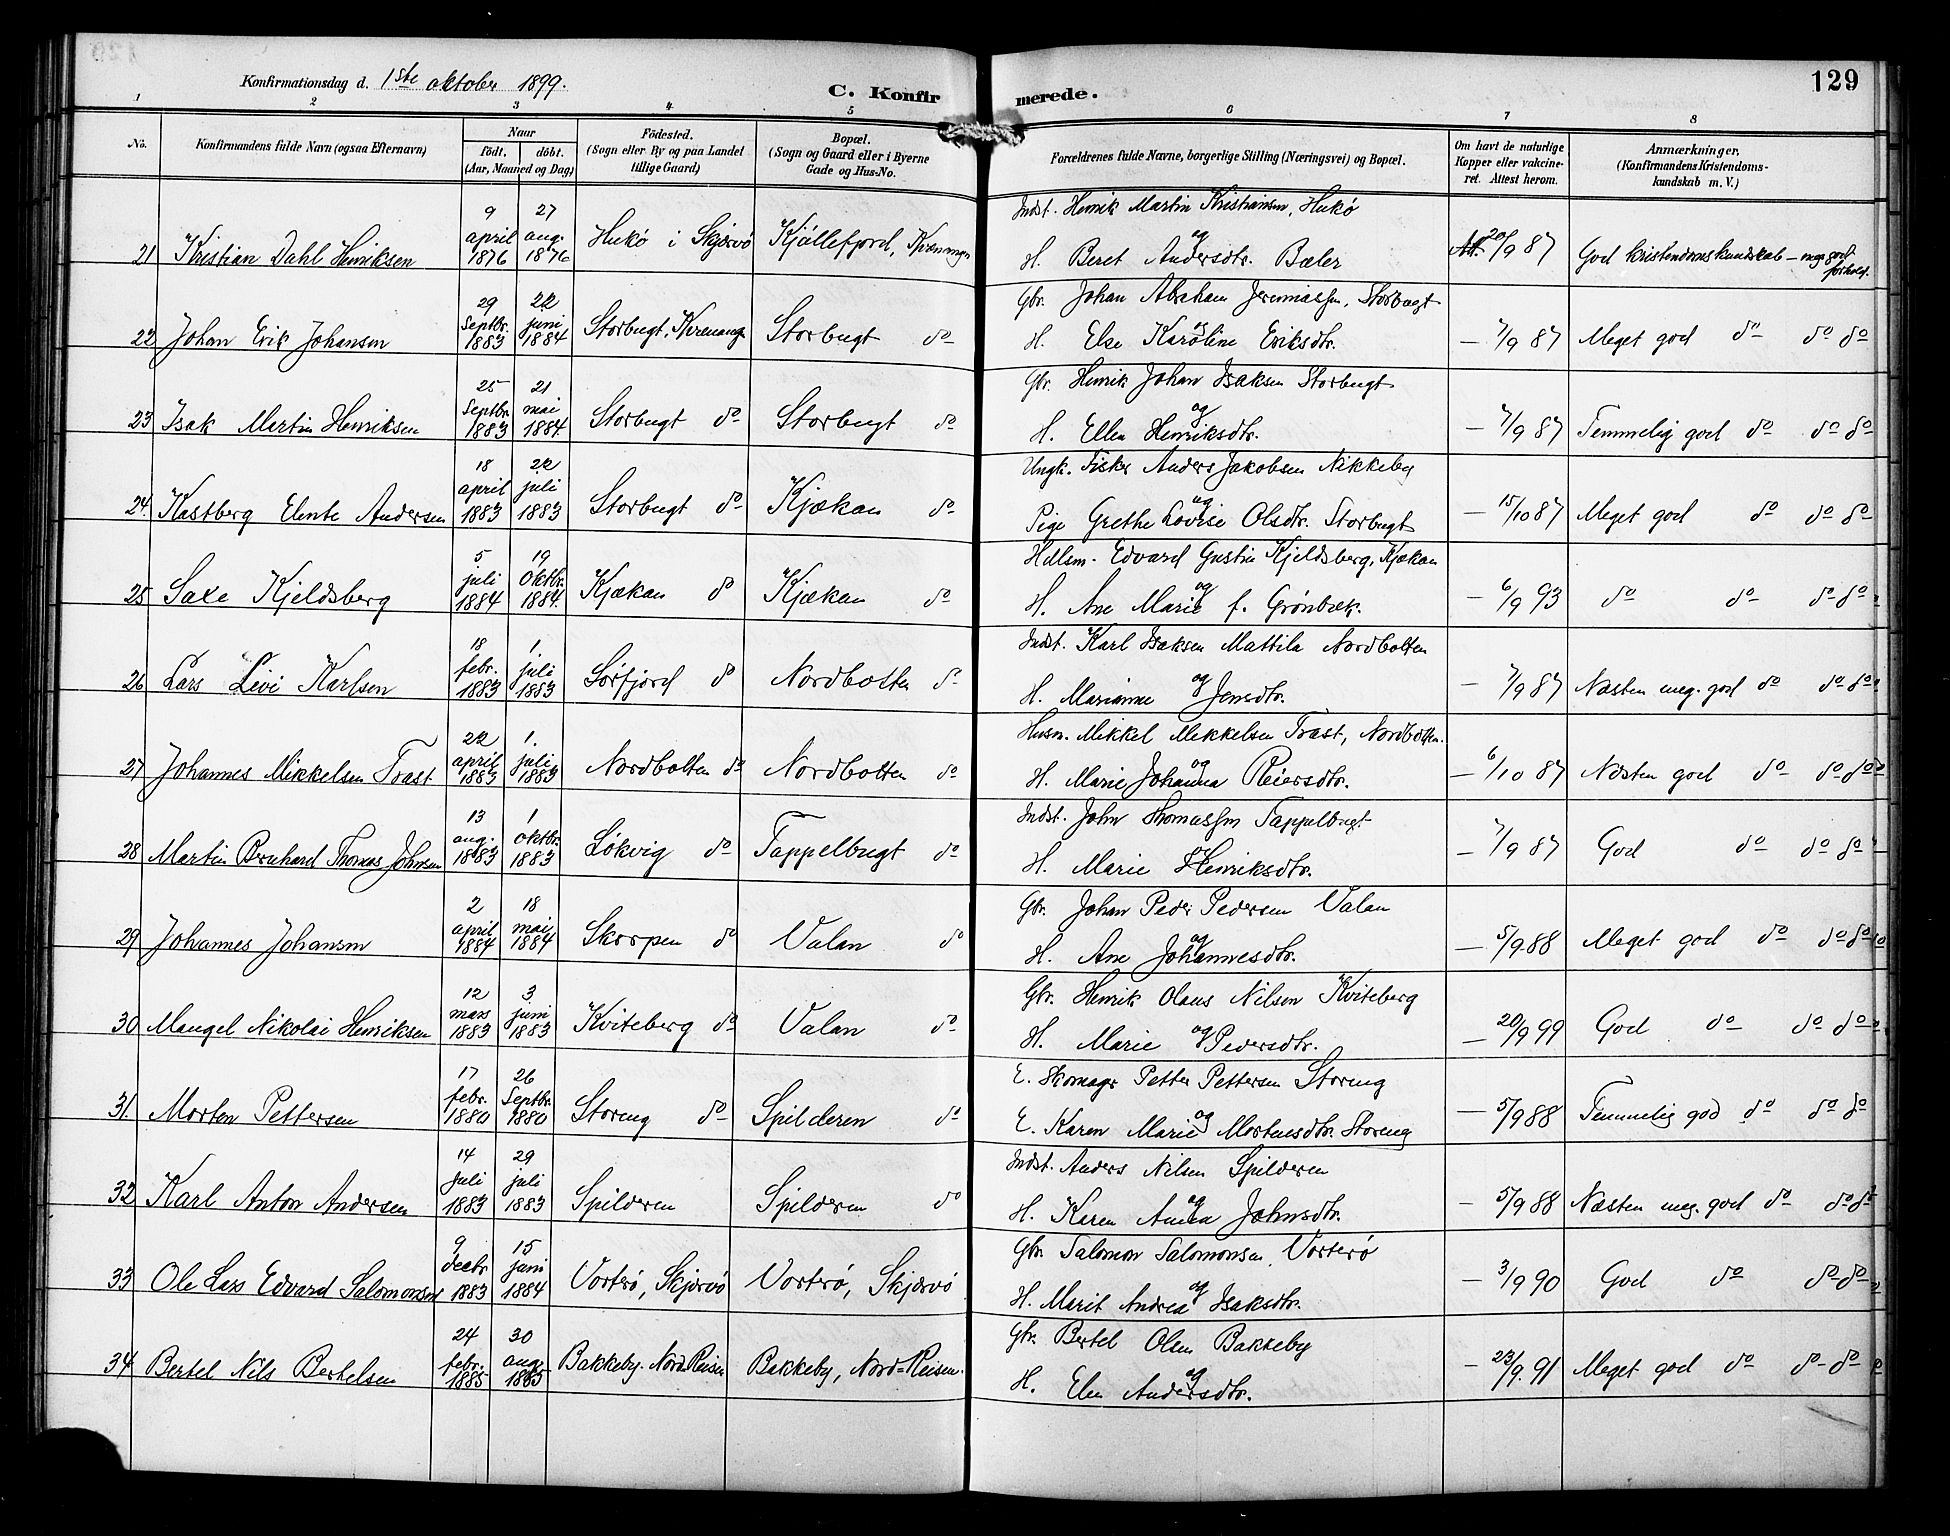 129
Konfirmationsdag d. 1ste oktober 1899.
C. Konfirmerede.
1 2 3 4 5 6 7 8
No. Konfirmandens fulde Navn (ogsaa Efternavn) Naar født, døbt. (Aar, Maaned og Dag) Fødested. (Sogn eller By og paa Landet tillige Gaard) Bopæl. (Sogn og Gaard eller i Byerne Gade og Hus-No. Forældrenes fulde Navne, borgerlige Stilling (Næringsvei) og Bopæl. Om havt de naturlige Kopper eller vakcineret. Attest herom. Anmærkninger, (Konfirmandens Kristendomskundskab m. V.)
21 Kristian Dahl Henriksen 9 april 1876 27 aug. 1876 Hukø i Skjærvø Kjøllefjord, Indst. Henrik Martin Kristiansen, Hukø og H. Beret Andersdtr. Bæler At. 20/9 87 God kristendomskundskab – meg. god forhold.
22 Johan Erik Johansen 29 Septbr. 1883 22 juni 1884 Storbugt, Kvænang Storbugt do Gbr. Johan Abraham Jeremiassen, Storbugt og H. Else Karoline Eriksdtr. – 7/9 87 Meget god do do do
23 Isak Martin Henriksen 25 Septbr. 1883 21 mai 1884. Storbugt do Storbugt do Gbr. Henrik Johan Isaksen Storbugt og H. Ellen Henriksdtr. – 7/9 87 Temmelig god do do do
24. Kastberg Elente Andersen 18 april 1883 22 juli 1883 Storbugt do Kjækan do Ungk. Fisker Anders Jakobsen Nikkeby og Pige Grethe Lovise Olsdtr. Storbugt – 15/10 87 Meget god do do do
25 Saxe Kjeldsberg 5 juli 1884 19 Oktbr. 1884. Kjækan do Kjækan do Hdlsm. Edvard Gustin Kjeldsberg, Kjækan og H. Ane Marie f. Grønbæk. – 6/9 93 do do do do
26 Lars Levi Karlsen 18 febr. 1883 1. juli 1883 Sørfjord do Nordbotten do Indst. Karl Isaksen Mattila Nordbotten og H. Marianne Jensdtr. – 7/9 87 Næsten meg. god do do do
27 Johannes Mikkelsen Trast 22 april 1883 1. juli 1883 Nordbotten do Nordbotten do Husm. Mikkel Mikkelsen Trast, Nordbotten. og H. Marie Johanna Reiersdtr. – 6/10 87 Næsten god do do do
28 Martin Bernhard Thomas Johnsen 13 aug. 1883 1 oktbr. 1883 Løkvig do Tappelbugt do Indst. John Thomassen Tappelbugt H. Marie Henriksdtr. – 7/9 87 God do do do
29 Johannes Johansen 2 april 1884 18 mai 1884 Skorpen do Valan do Gbr. Johan Peder Pedersen Valan og H. Ane Johannesdtr. – 5/9 88 Meget god do do do
30 Mangel Nikolai Henriksen 12 mars 1883 3 juni 1883 Kviteberg do Valan do Gbr. Henrik Olaus Nilsen Kviteberg og H. Marie Pedersdtr. – 20/9 99 God do do do
31. Morten Pettersen 17 febr. 1880 26 Septbr. 1880 Storeng do Spilderen do E. Skomagr Petter Pettersen Storeng og E. Karen Marie Mortensdtr. Storeng – 5/9 88 Temmelig god do do do
32 Karl Anton Andersen 14 juli 1883 29 juli 1883 Spilderen Spilderen do Indst. Anders Nilsen Spilderen og H. Karen Anna Johnsdtr. – 5/9 88 Næsten meg. god do do do
33 Ole Lars Edvard Salomonsen 9 decbr 1883 15 juni 1884 Vorterø, Skjærvø Vorterø, Skjærvø Gbr. Salomon Salomonsen, Vorterø og H. Marit Andrea Isaksdtr. – 3/9 90 God do do do
34 Bertel Nils Bertelsen 24 febr. 1885 30 aug. 1885 Bakkeby. Nord-Reisen Bakkeby, Nord=Reisen. Gbr. Bertel Olsen Bakkeby og H. Elen Andersdtr. – 23/9. 91 Meget god do do do